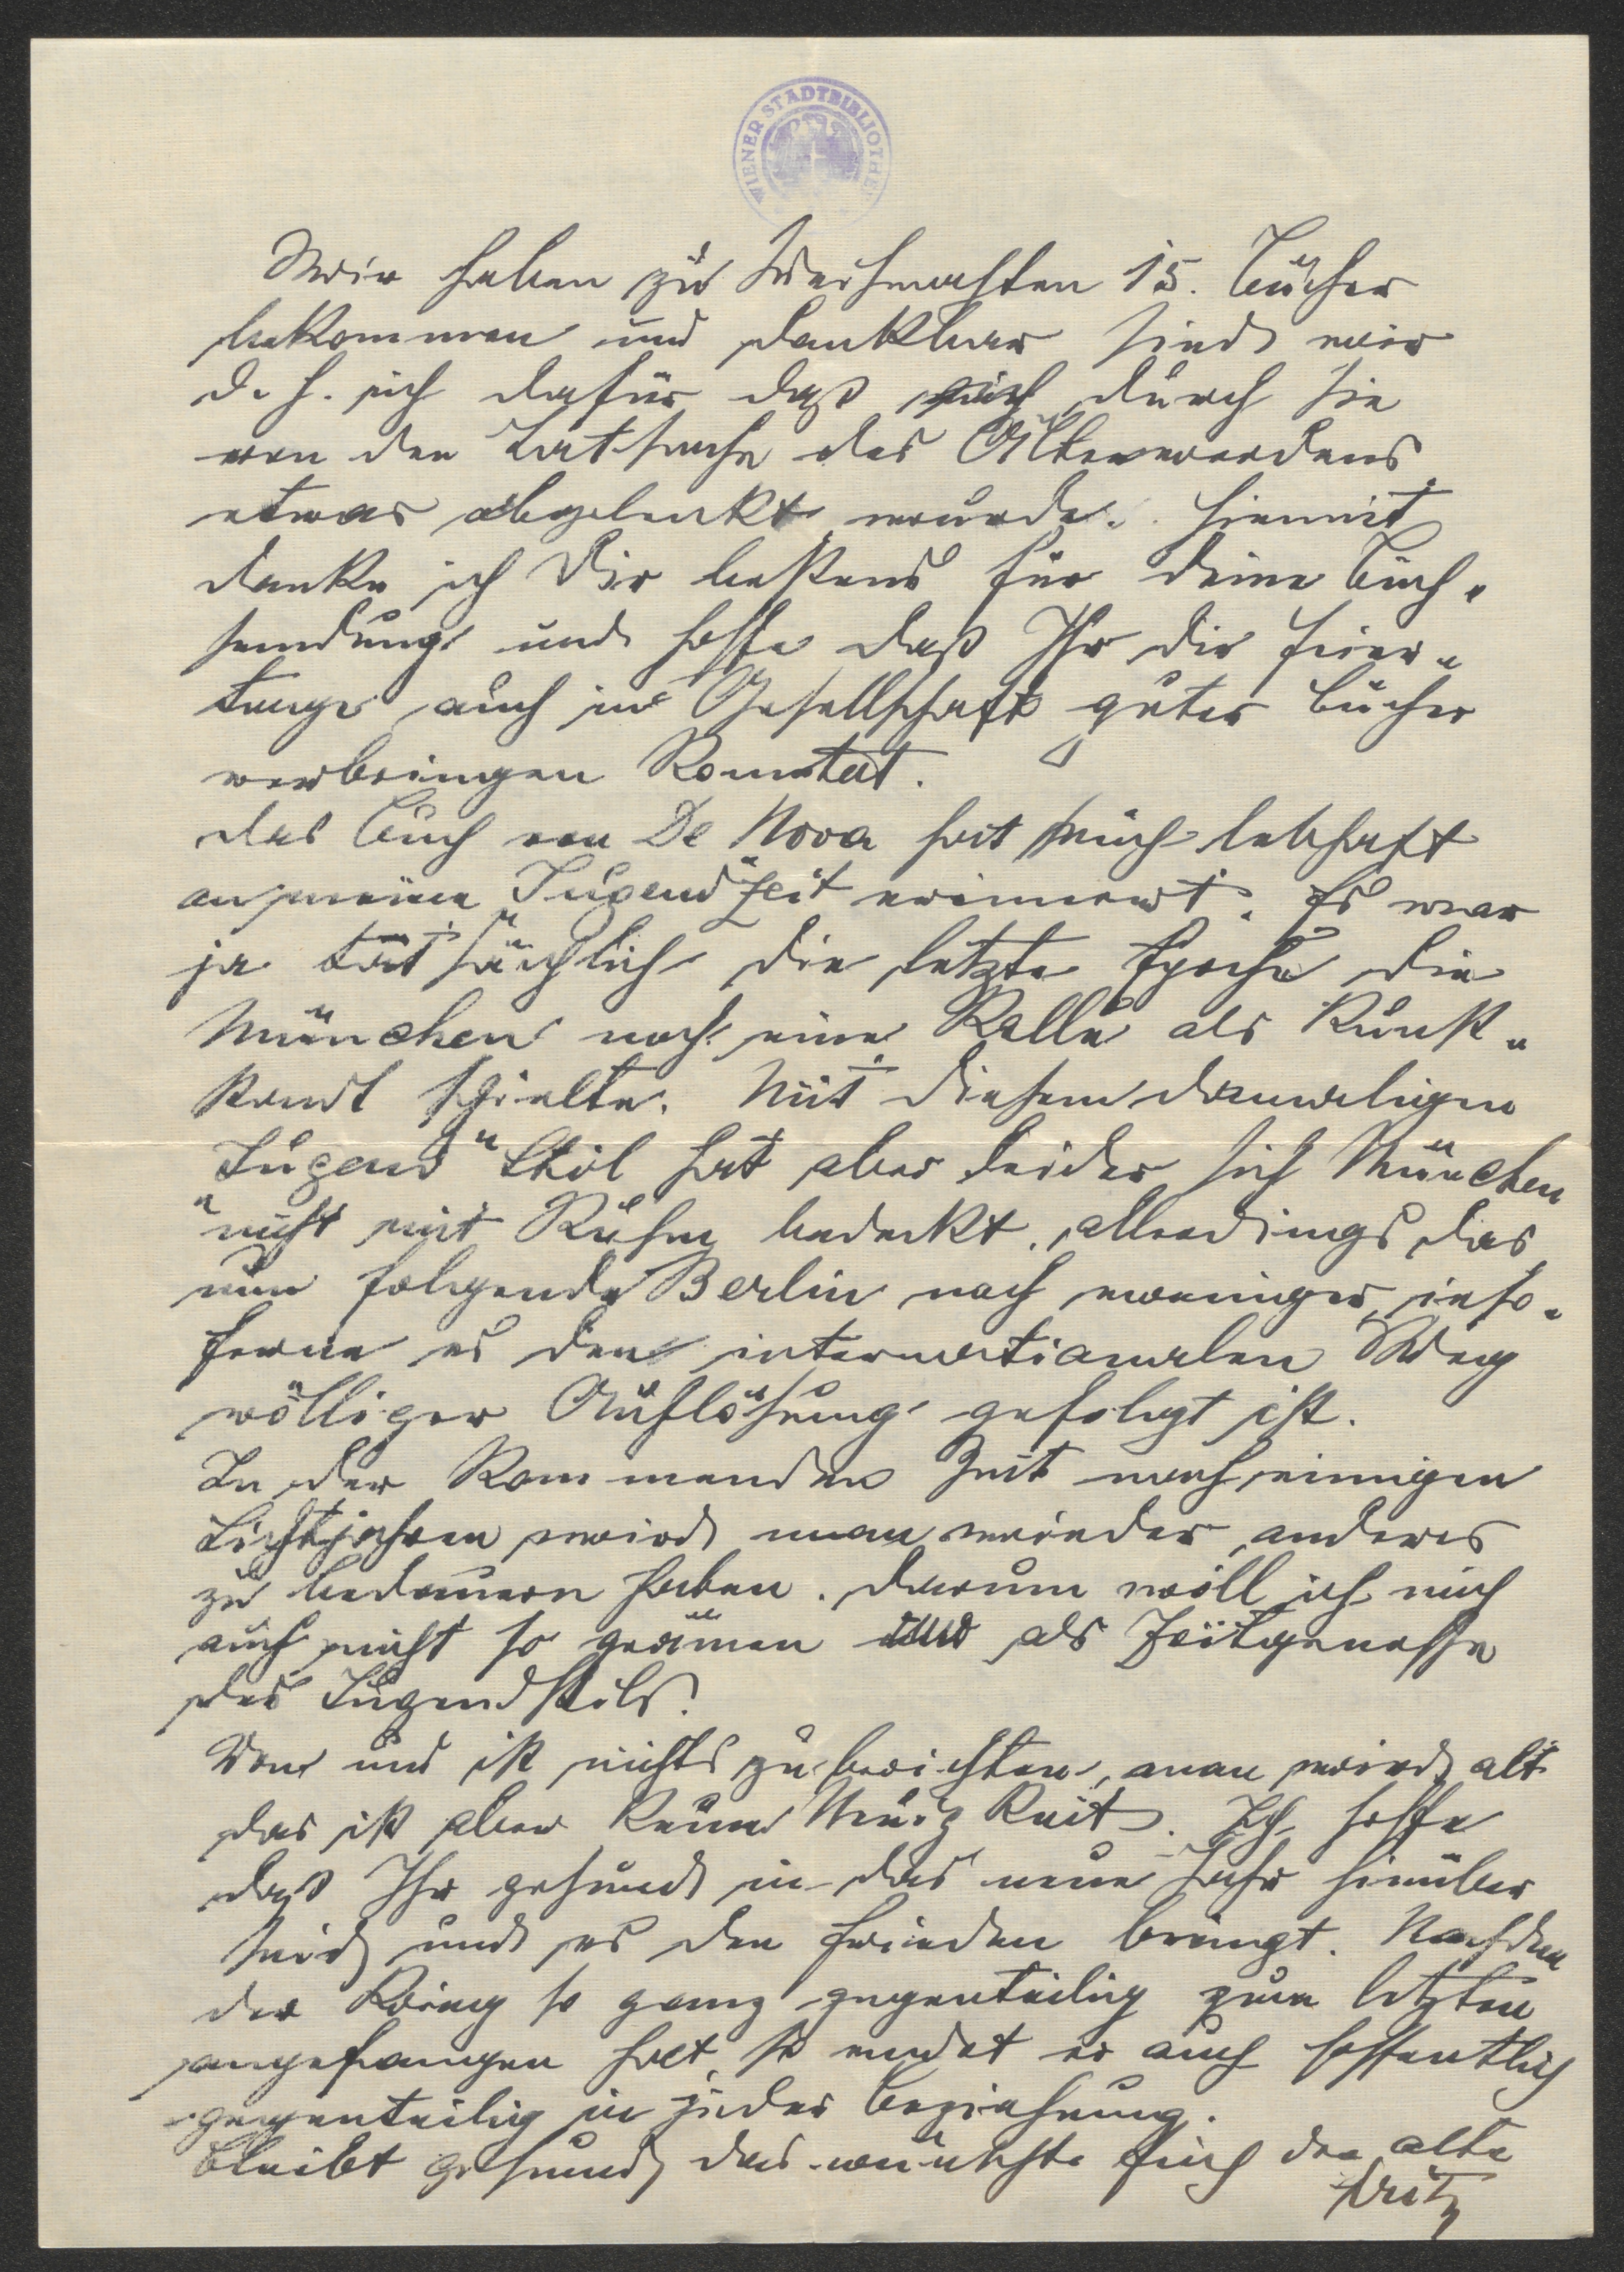 WIENER STADTBIBLIOTHEK
Wir haben zu Weihnachten 15. Bücher
bekommen und dankbar sind wir
d. h. ich dafür daß ich durch sie
von der Tatsache des Älterwerdens
etwas abgelenkt wurde. Hiemit
danke ich Dir bestens für deine Buch-
sendung und hoffe daß Ihr die Feier-
tage auch in Gesellschaft guter Bücher
verbringen konntet.
Das Buch von De Nora hat mich lebhaft
an meine "Jugend" Zeit erinnert. Es war
ja tatsächlich die letzte Epoche die
München noch eine Rolle als Kunst-
stadt spielte. Mit diesem damaligen
"Jugend" Stil hat aber leider sich München
nicht mit Ruhm bedeckt. allerdings das
nun folgende Berlin noch weniger, inso-
ferne es den internationalen Weg
völliger Auflösung gefolgt ist.
In der kommenden Zeit nach einigen
Lichtjahren wird man wieder anderes
zu bedauern haben. Darum will ich mich
auch nicht so grämen als Zeitgenosse
des Jugendstils.
Von uns ist nichts zu berichten, man wird alt
das ist aber keine Neuigkeit. Ich hoffe
daß Ihr gesund in das neue Jahr hinüber
seid und es den Frieden bringt. Nachdem
der Krieg so ganz gegenteilig zum letzten
angefangen hat, so endet er auch hoffentlich
gegenteilig in jeder Beziehung.
Bleibt gesund das wünscht Euch der alte
Fritz